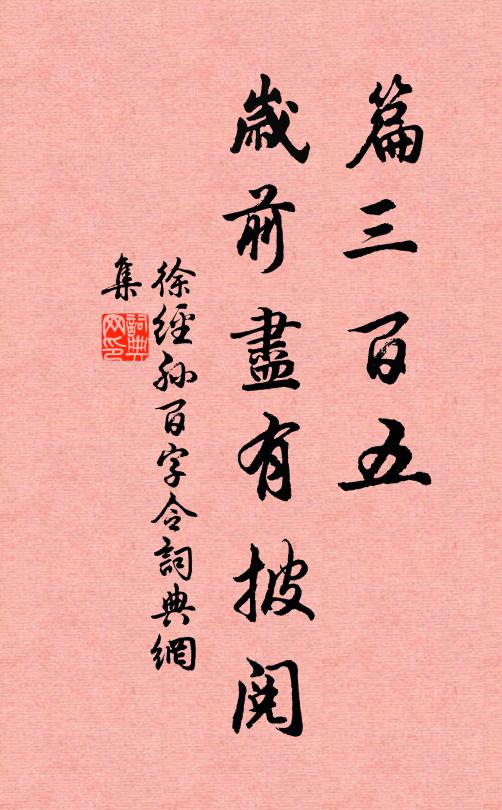 篇三百五
歲前盡有披閱
徐經孫百字令詞典網
集
詞典
网印